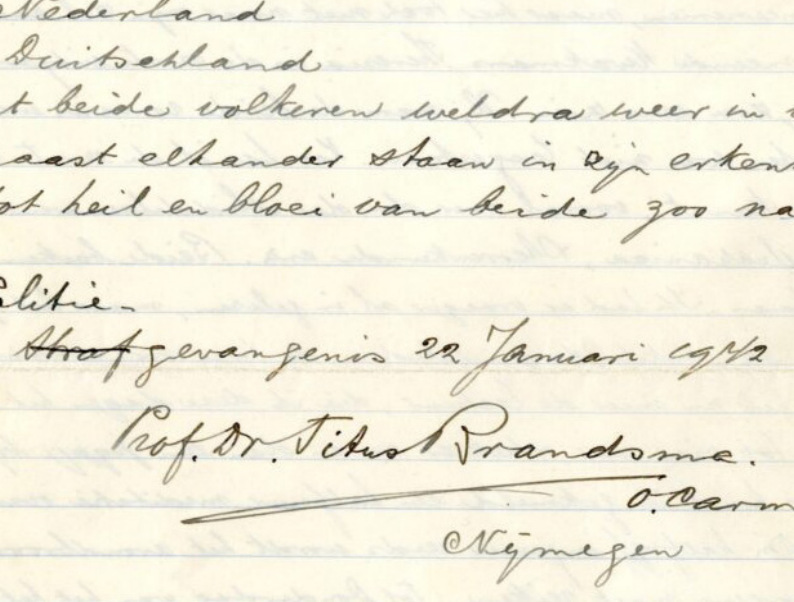 Nederland
Duitschland
t beide volkeren weldra weer in
aast elkander staan in zijn erken
tot heil en bloei van beide zoo na
olitie-
Strafgevangenis 22 Januari 1942
Prof. Dr. Titus Brandsma.
O. Carm
Nijmegen